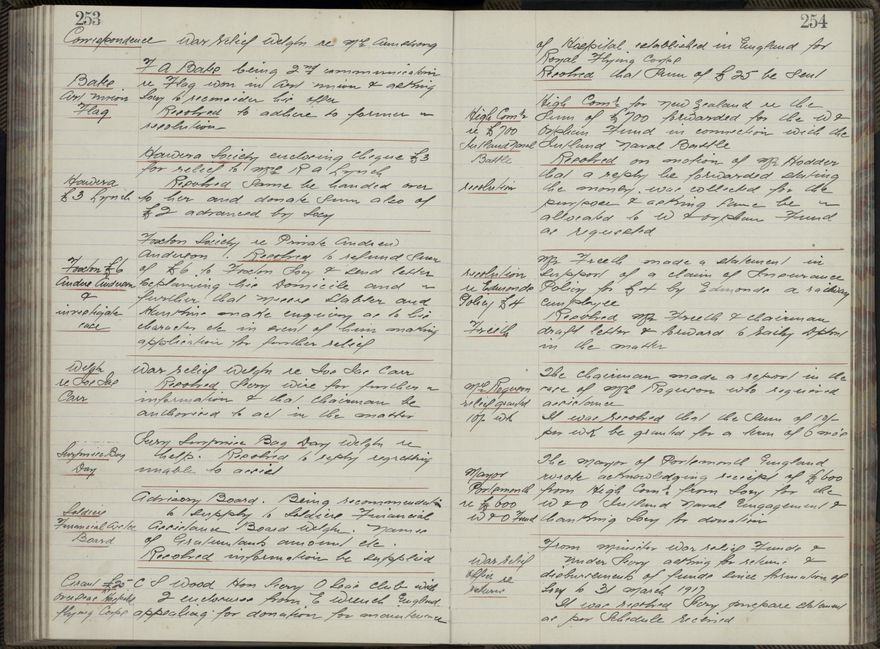 253
Correspondence War Relief Welgtn re Mrs Armstrong
Bake
Art Union
Flag
F A Bake being 2nd communication
re Flag won in Art Union & asking
Socy to reconsider his offer
Resolved to adhere to former
resolution
Hawera
£3 Lynch
Hawera Society enclosing cheque £3
for relief to Mrs R A Lynch
Resolved same be handed over
to her and donate sum also of
£2 advanced by Socy
Foxton £6
Andrew Anderson
&
investigate
case
Foxton Society re Private Andrew
Anderson. Resolved to refund sum
of £6 to Foxton Socy & send letter
explaining his domicile and
further that Messrs Slater and
make enquiry as to his
character etc in event of him making
application for further relief
Welgtn
re Joe Joe
Carr
War Relief Welgtn re Joe Joe Carr
Resolved Secy wire for further
information & that Chairman be
authorised to act in the matter
Surprise Bag
Day
Secy Surprise Bag Day Welgtn re
help. Resolved to reply regretting
unable to assist
Soldiers
Financial Asstce
Board
Advisory Board. Being recommendation
to supply to Soldiers Financial
Assistance Board Welgtn. Names
of Grantees amount etc.
Resolved information be supplied
Grant £25
Overseas Hospital
Flying Corps
C S Wood Hon Secy O Seas Club with
2 enclosures from E Wrench England
appealing for donation for maintenance
254
of Hospital established in England for
Royal Flying Corps
Resolved that sum of £25 be sent
High Comr
re £700
Jutland Naval
Battle
resolution
High Comr for New Zealand re the
sum of £700 forwarded for the W &
Orphans Fund in connection with the
Jutland Naval Battle
Resolved on motion of Mr Hodder
that a reply be forwarded stating
the money was collected for the
purpose & asking same be
allocated to W & Orphan Fund
as requested
resolution
re Edmonds
Policy £4
Freeth
Mr Freeth made a statement in
support of a claim of Insurance
Policy for £4 by Edmonds a railway
employee
Resolved Mr Freeth & Chairman
draft letter & forward to Railwy Deptmt
in the matter
Mrs Rogerson
relief granted
10/- wk
The Chairman made a report in the
case of Mrs Rogerson who required
assistance
It was resolved that the sum of 10/-
per wk be granted for a term of 6 mos
Mayor
Portsmouth
re £600
W & O Fund
The Mayor of Portsmouth England
wrote acknowledging receipt of £600
from High Comr from Socy for the
W & O Jutland Naval Engagement &
thanking Socy for donation
War Relief
Office re
returns
From Minister War Relief Funds &
Under Secy asking for returns &
disbursements of funds since formation of
Socy to 31 March 1917
It was resolved Secy prepare statement
as per Schedule received